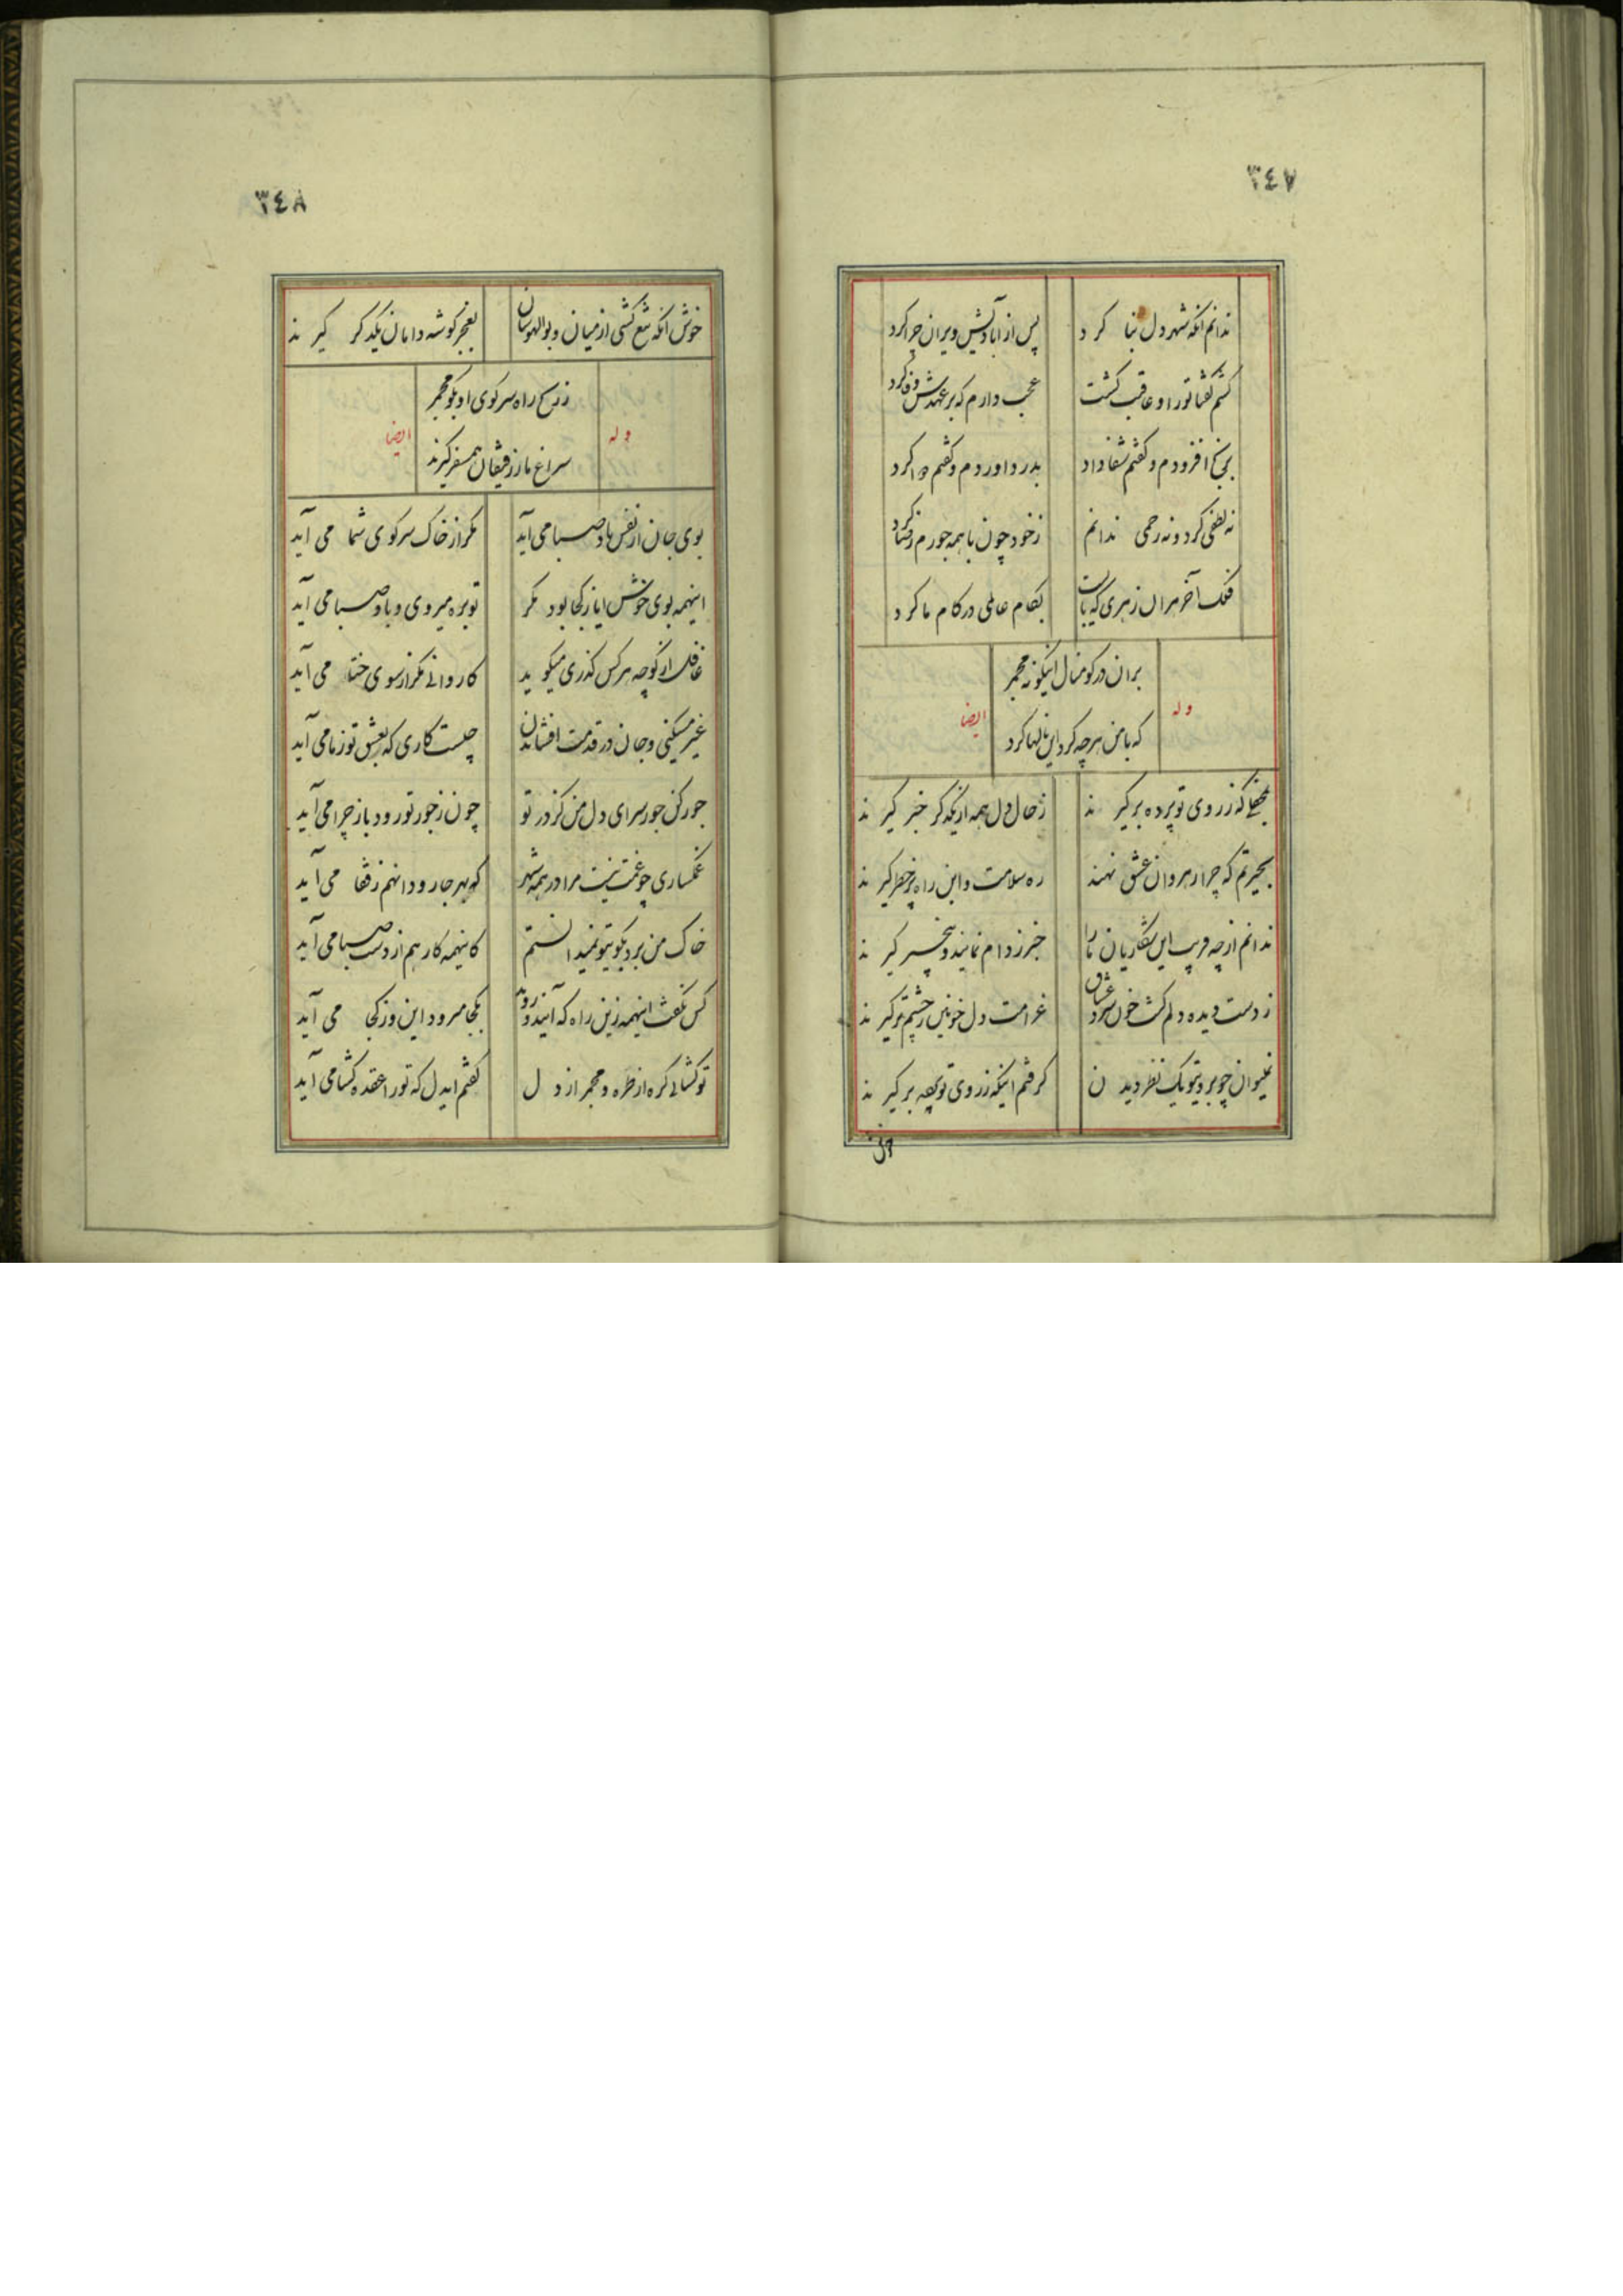 ٣٤٧
ندانم انکه شهر دل بنا کرد
پس از آبادیش ویران چرا کرد
کشم کفتا تو را و عاقبت کشت
عجب دارم که بر عهدش وفا کرد
برنج افزودم و کفتم شفا داد
بدرد اوردم و کفتم دوا کرد
نه لطفی کرد و نه رحمی ندانم
زخود چون با همه جورم رضا کرد
فلک آخر مران زهری که بایست
بکام عالمی در کام ما کرد
بران در کو منال اینکونه مجمر
وله
ایضا
که با من هرچه کرد این نالها کرد
که زروی تو پرده بر کیرند
زحال دل همه از یکدکر خبر کیرند
بحیرتم که چرا رهروان عشق نهند
ره سلامت و این راه پر خطر کیرند
ندانم از چه فریب این شکاریان ما را
خبر زدام نمایند و بیخبر کیرند
زدست دیده دلم کشت خون
غرامت دل خونین زچشم تر کیرند
نمیتوان چو برویتو یک نظر دیدن
کرفتم اینکه زروی تو پرده بر کیرند
خوش
٣٤٨
خوش آنکه تیغ کشی از میان و بوالهوسان
بعجز کوشه دامان یکدکر کیرند
زرنج راه سر کوی او بکو مجمر
وله
ایضا
سراغ ما زرفیقان همسفر کیرند
بوی جان از نفس باد صبا می آید
مکر از خاک سر کوی شما می آید
اینهمه بوی خوش ایا زکجا بود مکر
تو بره میروی و باد صبا می آید
غافل از کوچه هر کس کذری میکوید
کاروانی مکر از سوی ختا می آید
غیر مسکینی و جان در قدمت افشاندن
چیست کاری که بعشق تو زما می آید
جور کن جور سرای دل من کز در تو
چون زجور تو رود باز چرا می آید
غمکساری چو غمت نیست مرا در همه شهر
که بهر جا رود انهم زقفا می آید
خاک من برد بکویتو نمیدانستم
کاینهمه کار هم از دست صبا می آید
کس نکفت اینهمه زین راه که آیند و روند
بکجا میرود این وز کجا می آید
تو کشائی کره از طره و مجمر از دل
کفتم ایدل که تو را عقده کشا می آید